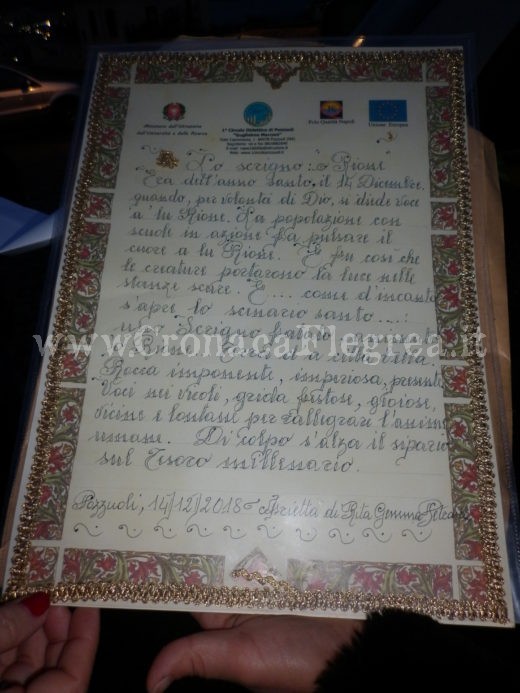 Ministero dell'Istruzione
dell'Università e della Ricerca
1° Circolo Didattico di Pozzuoli
"Guglielmo Marconi"
Polo Qualità Napoli
Unione Europea
Lo scrigno: o Rione
Era dell'anno santo, il 14 Dicembre,
quando, per volontà di Dio, si diede voce
a 'lu Rione. La popolazione con
scuole in azione fa pulsare il
cuore a lu Rione. E fu così che
le creature portarono la luce nelle
stanze scure. E.... come d'incanto
s'apre lo scenario santo....:
uno Scrigno
www.CronacaFlegrea.it
Rocca imponente, imperiosa, presente
Voci nei vicoli, grida festose, gioiose,
vicine e lontane per rallegrare l'anime
umane. Di colpo s'alza il sipario
sul Tesoro millenario.
Pozzuoli, 14/12/2018 di Rita Gemma